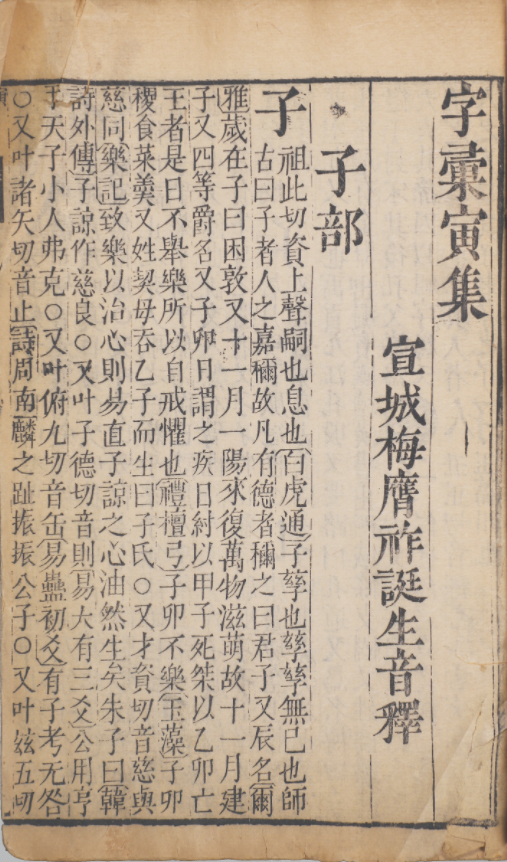 字彙寅集
宣城梅膺祚誕生音釋
子部
子 祖此切資上聲嗣也息也白虎通子孳也孳孳無已也師
古曰子者人之嘉稱故凡有德者稱之曰君子又辰名爾
雅歲在子曰困敦又十一月一陽來復萬物滋萌故十一月建
子又四等爵名又子卯日謂之疾日紂以甲子死桀以乙卯亡
王者是日不舉樂所以自戒懼也禮檀弓子卯不樂玉藻子卯
稷食菜羹又姓契母吞乙子而生曰子氏○又才資切音慈與
慈同樂記致樂以治心則易直子諒之心油然生矣朱子曰韓
詩外傳子諒作慈良○又叶子德切音則易大有三爻公用亨
于天子小人弗克○又叶俯九切音缶易蠱初爻有子考无咎
○又叶諸矢切音止詩周南麟之趾振振公子○又叶兹五切